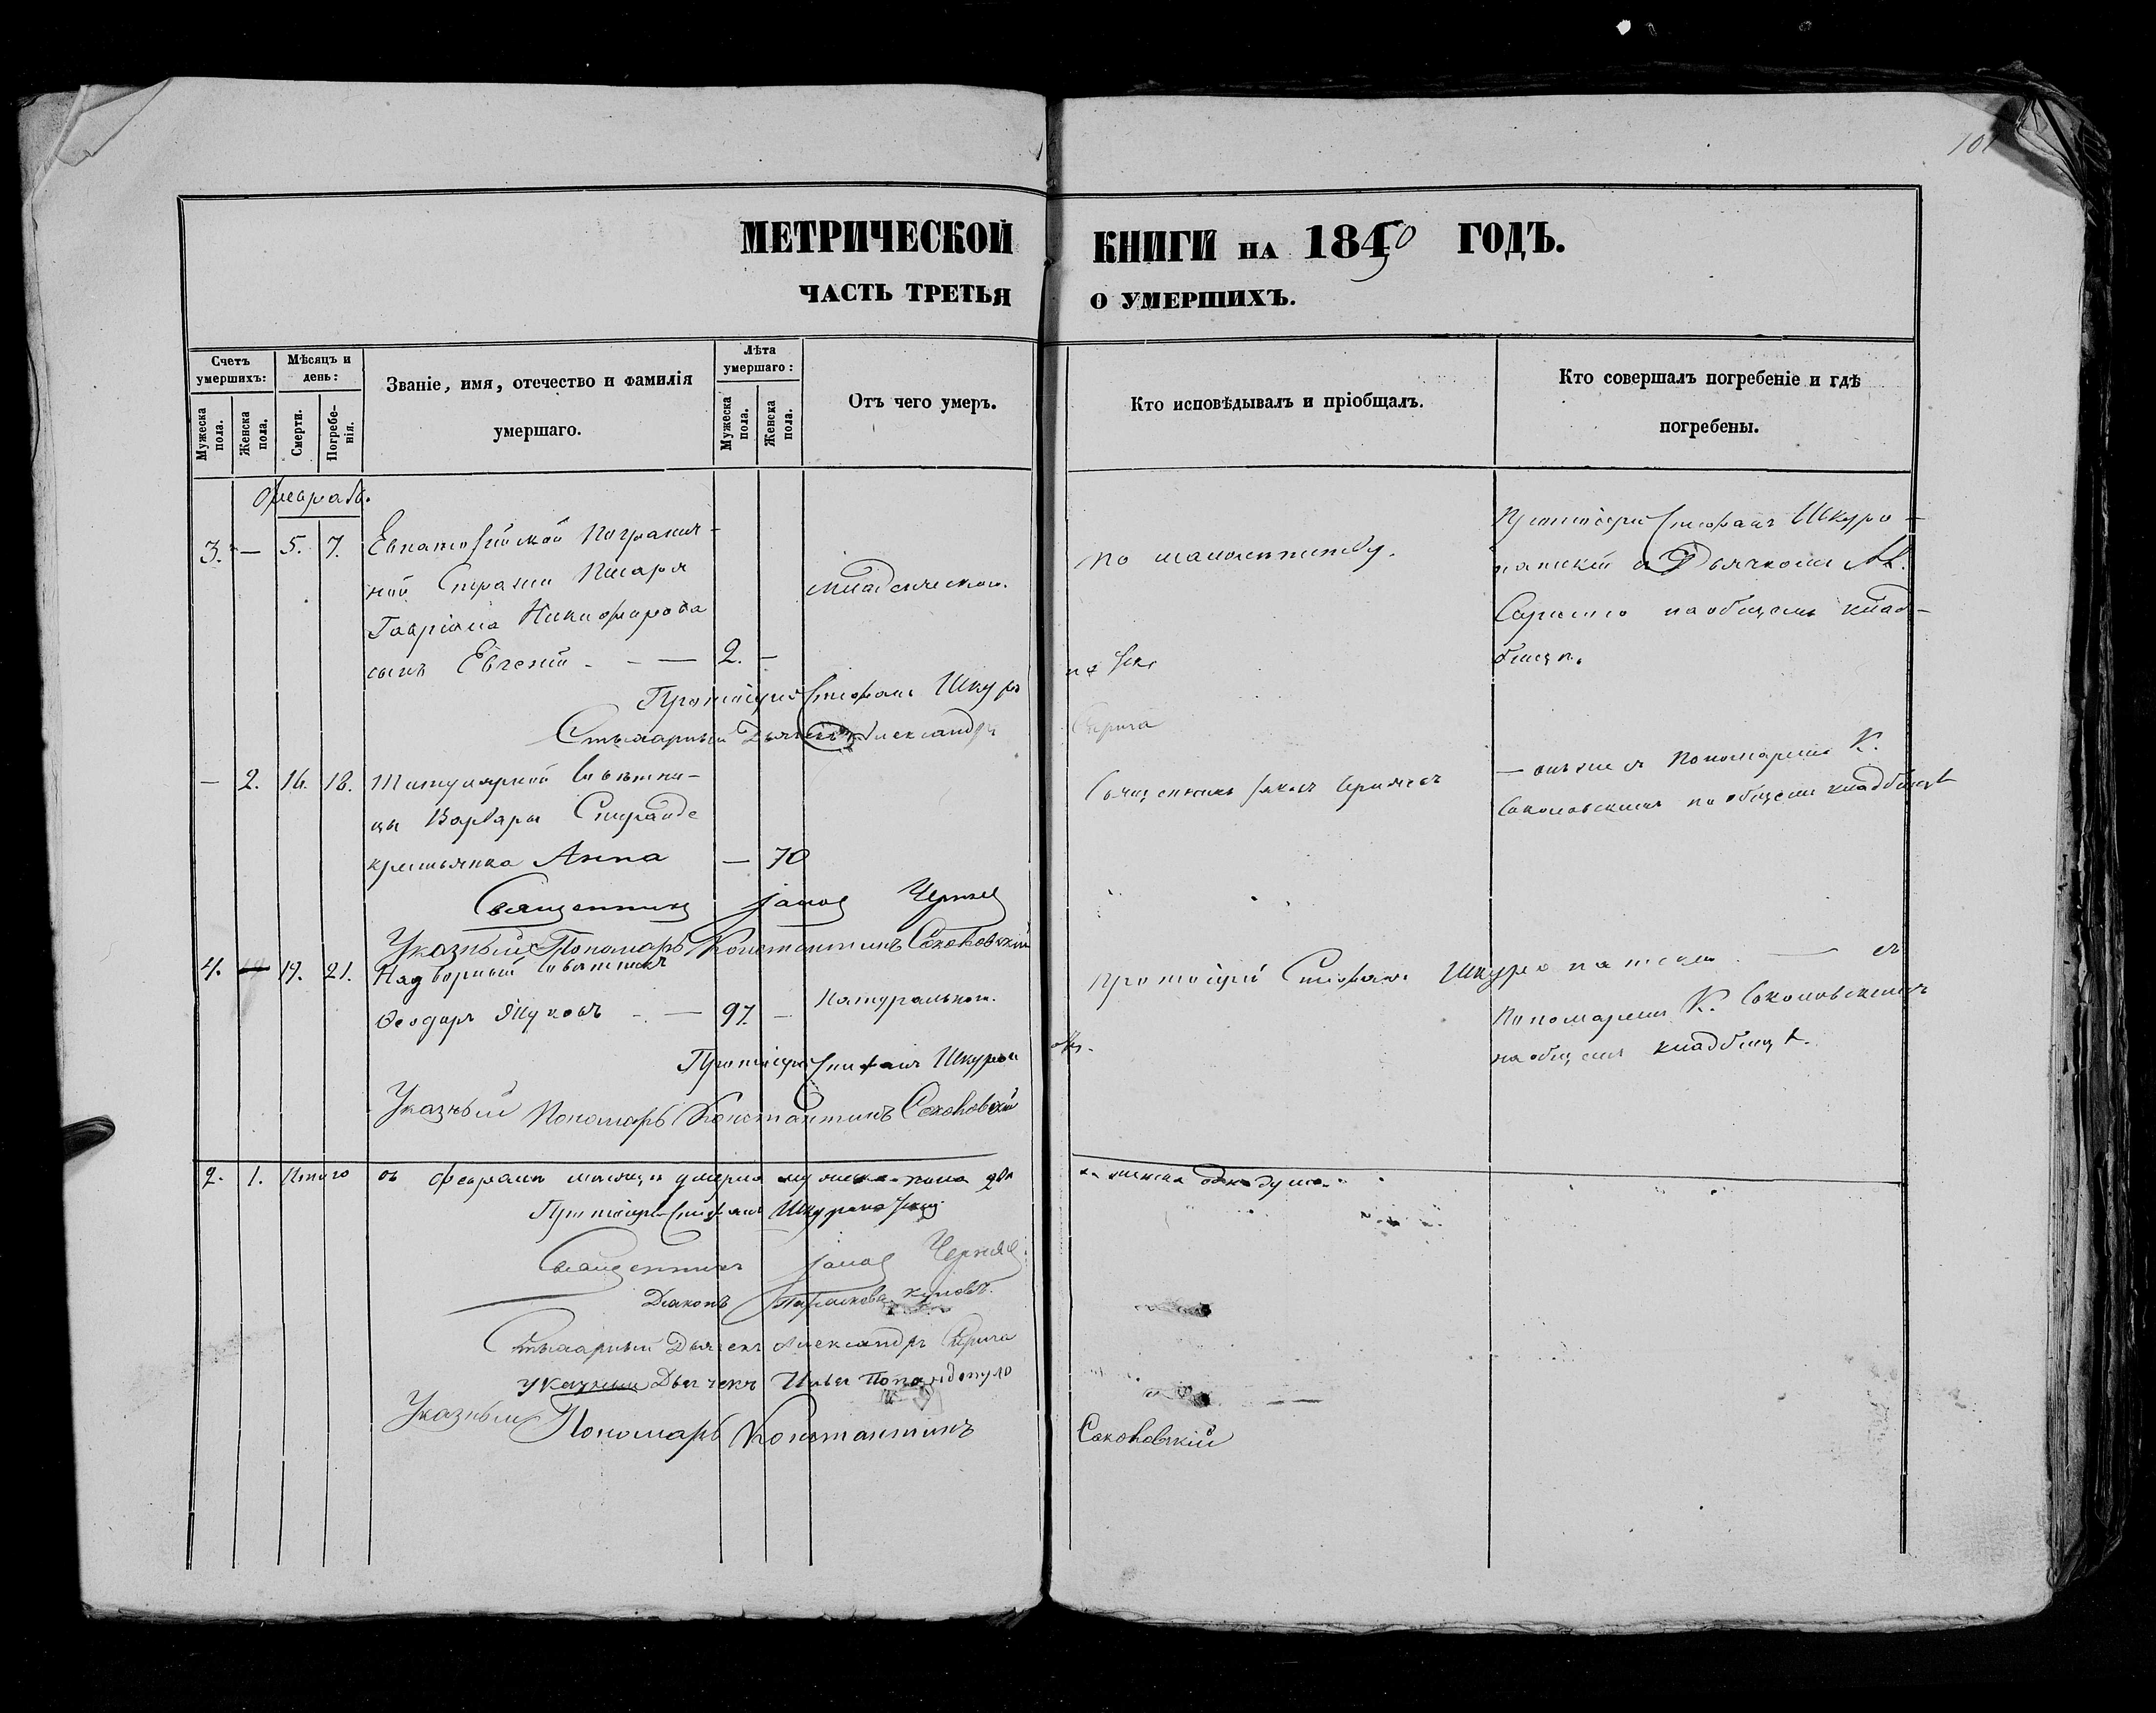 101
МЕТРИЧЕСКОЙ КНИГИ НА 1850 ГОДЪ.
ЧАСТЬ ТРЕТЬЯ О УМЕРШИХЪ.
Счетъ умершихъ:
Мужеска пола.
Женска пола.
Мѣсяцъ и день:
Смерти.
Погребенія.
Званіе, имя, отечество и фамилія умершаго.
Лѣта умершаго:
Мужеска пола.
Женска пола.
Отъ чего умеръ.
Кто исповѣдывалъ и пріобщалъ.
Кто совершалъ погребеніе и гдѣ погребены.
Февраль.
3. — 5. 7. Евпаторійской Погранич-
ной Стражи Писаря
Гавріила Никифорова
сынъ Евгеній — 2. —
младенческой.
по малолѣтству.
Протоіерей Стефанъ Шкуро-
патскій съ Дьячкомъ Ал.
на общемъ клад-
бищѣ.
Протоіерей Стефанъ Шкуропатскій
Стихарный Дьячекъ Александръ
— 2. 16. 18. Титулярной Совѣтни-
цы Варвары
крестьянка Анна — 70
Священникъ
— съ Пономаремъ К.
Соколовскимъ на общемъ кладбищѣ
Священникъ Іаковъ Черняев
Указный Пономарь Константинъ Соколовскій
4. — 19. 21. Надворный Совѣтникъ
Ѳеодоръ Жуковъ — 97. —
Натуральной.
Протоіерей Стефанъ Шкуропатскій — съ
Пономаремъ К. Соколовскимъ
на общемъ кладбищѣ.
Протоіерей Стефанъ Шкуропатскій
Указный Пономарь Константинъ Соколовскій
2. 1. Итого въ Февралѣ мѣсяцѣ умерло мужеска пола двѣ и женска одна душа.
Протоіерей Стефанъ Шкуропатскій
Священникъ Іаковъ Черняев
Діаконъ
Стихарный Дьячекъ Александръ
Указный Дьячекъ Попандопуло
Указный Пономарь Константинъ Соколовскій